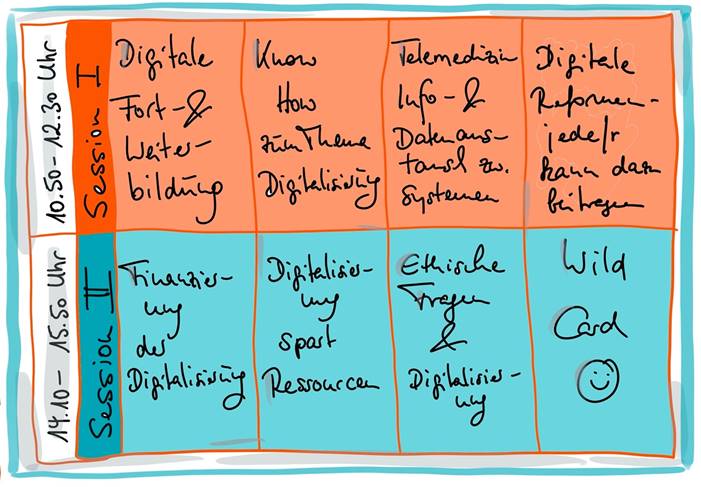 10.50 - 12.30 Uhr
Session I
Digitale
Fort- &
Weiter-
bildung
Know
How
zum Thema
Digitalisierung
Telemedizin
Info- &
Datenaus-
tausch zw.
Systemen
Digitale
Reformen -
jede/r
kann dazu
beitragen
14.10 - 15.50 Uhr
Session II
Finanzier-
ung
der
Digitalisierung
Digitalisier-
ung
spart
Ressourcen
Ethische
Fragen
&
Digitalisier-
ung
Wild
Card